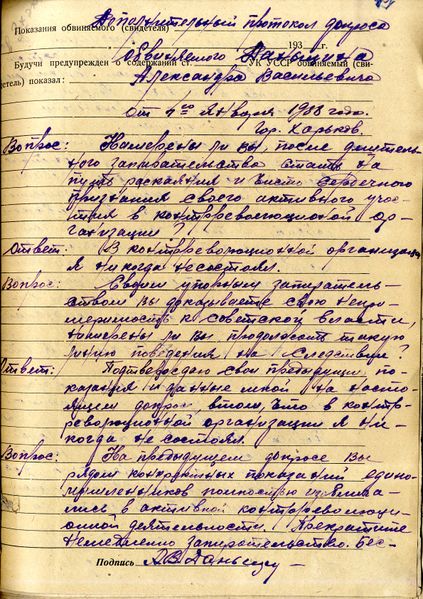 Дополнительный протокол допроса
Показания обвиняемого (свидетеля)
193 г.
обвиняемого
Будучи предупрежден о содержании ст. УК УССР обвиняемый (сви-
детель) показал: Александра Васильевича
От 4го Января 1938 года.
гор. Харьков.
Вопрос: Намерены ли вы, после длитель-
ного запирательства стать на
путь раскаяния и чисто сердечного
признания своего активного учас-
тия в контрреволюционной ор-
ганизации?
Ответ: В контрреволюционной организации
я никогда не состоял.
Вопрос: Своим упорным запиратель-
ством вы доказываете свою непри-
меримость к советской власти,
намерены ли вы продолжать такую
линию поведения на следствии?
Ответ: Подтверждаю свои предыдущие по-
казания и данные мной на насто-
ящем допросе, в том, что в контр-
революционной организации я ни-
когда не состоял.
Вопрос: На предыдущем допросе вы
рядом конкретных показаний едино-
мышленников полностью изоблича-
лись в активной контрреволюци-
онной деятельности. Прекратите
немедленно запирательство. Бес-
Подпись